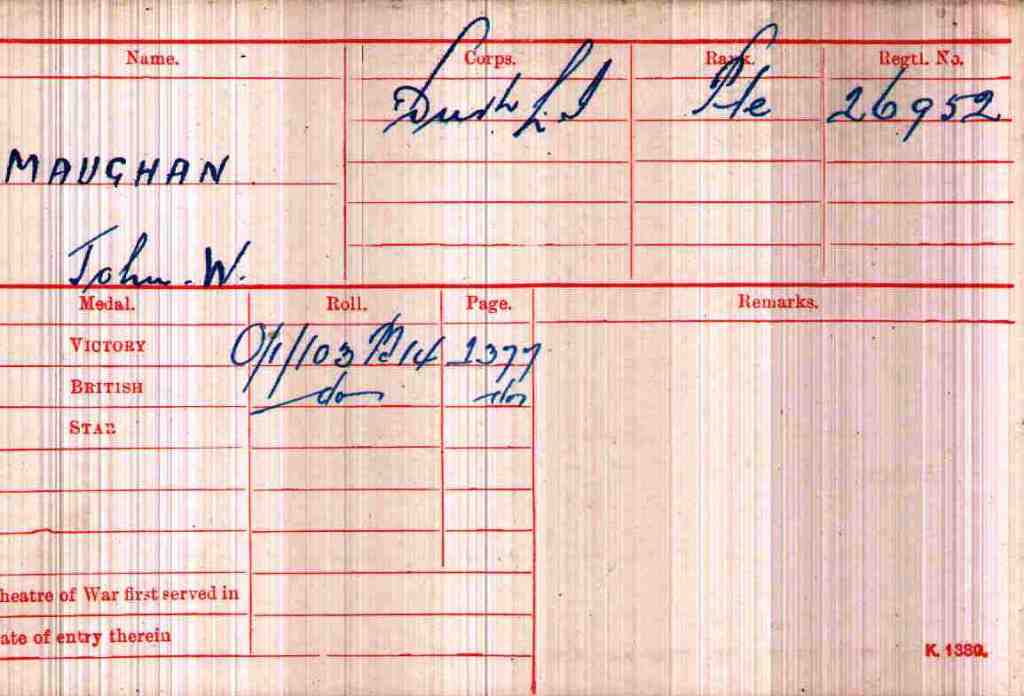 Name. Corps. Rank. Regtl. No.
Durh L.I Pte 26952
MAUGHAN
John. W.
Medal. Roll. Page. Remarks.
VICTORY O/1/103 B14 1377
BRITISH do do
STAR
heatre of War first served in
ate of entry therein
K. 1380.